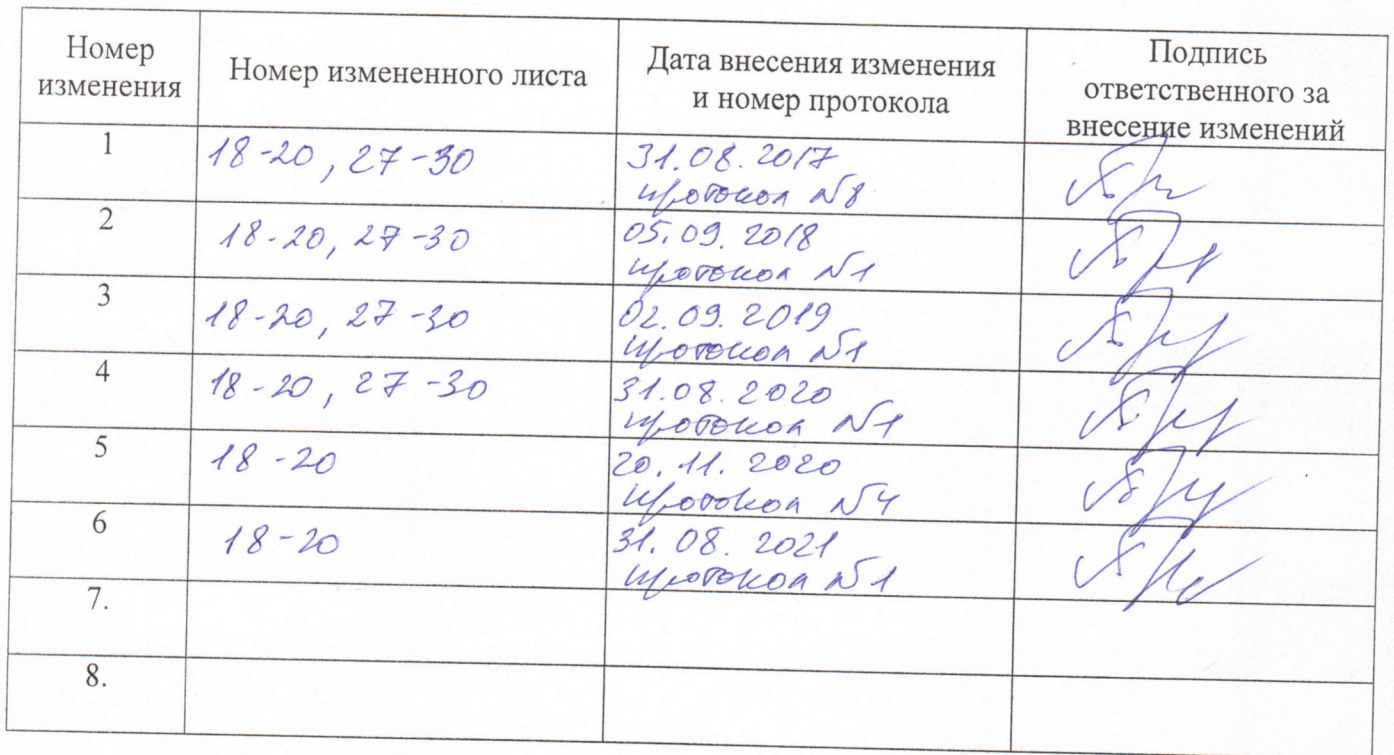 Номер
изменения
Номер измененного листа
Дата внесения изменения
и номер протокола
Подпись
ответственного за
внесение изменений
1
18-20, 27-30
31.08.2017
протокол №8
2
18-20, 27-30
05.09.2018
протокол №1
3
18-20, 27-30
02.09.2019
протокол №1
4
18-20, 27-30
31.08.2020
протокол №1
5
18-20
20.11.2020
протокол №4
6
18-20
31.08.2021
протокол №1
7.
8.